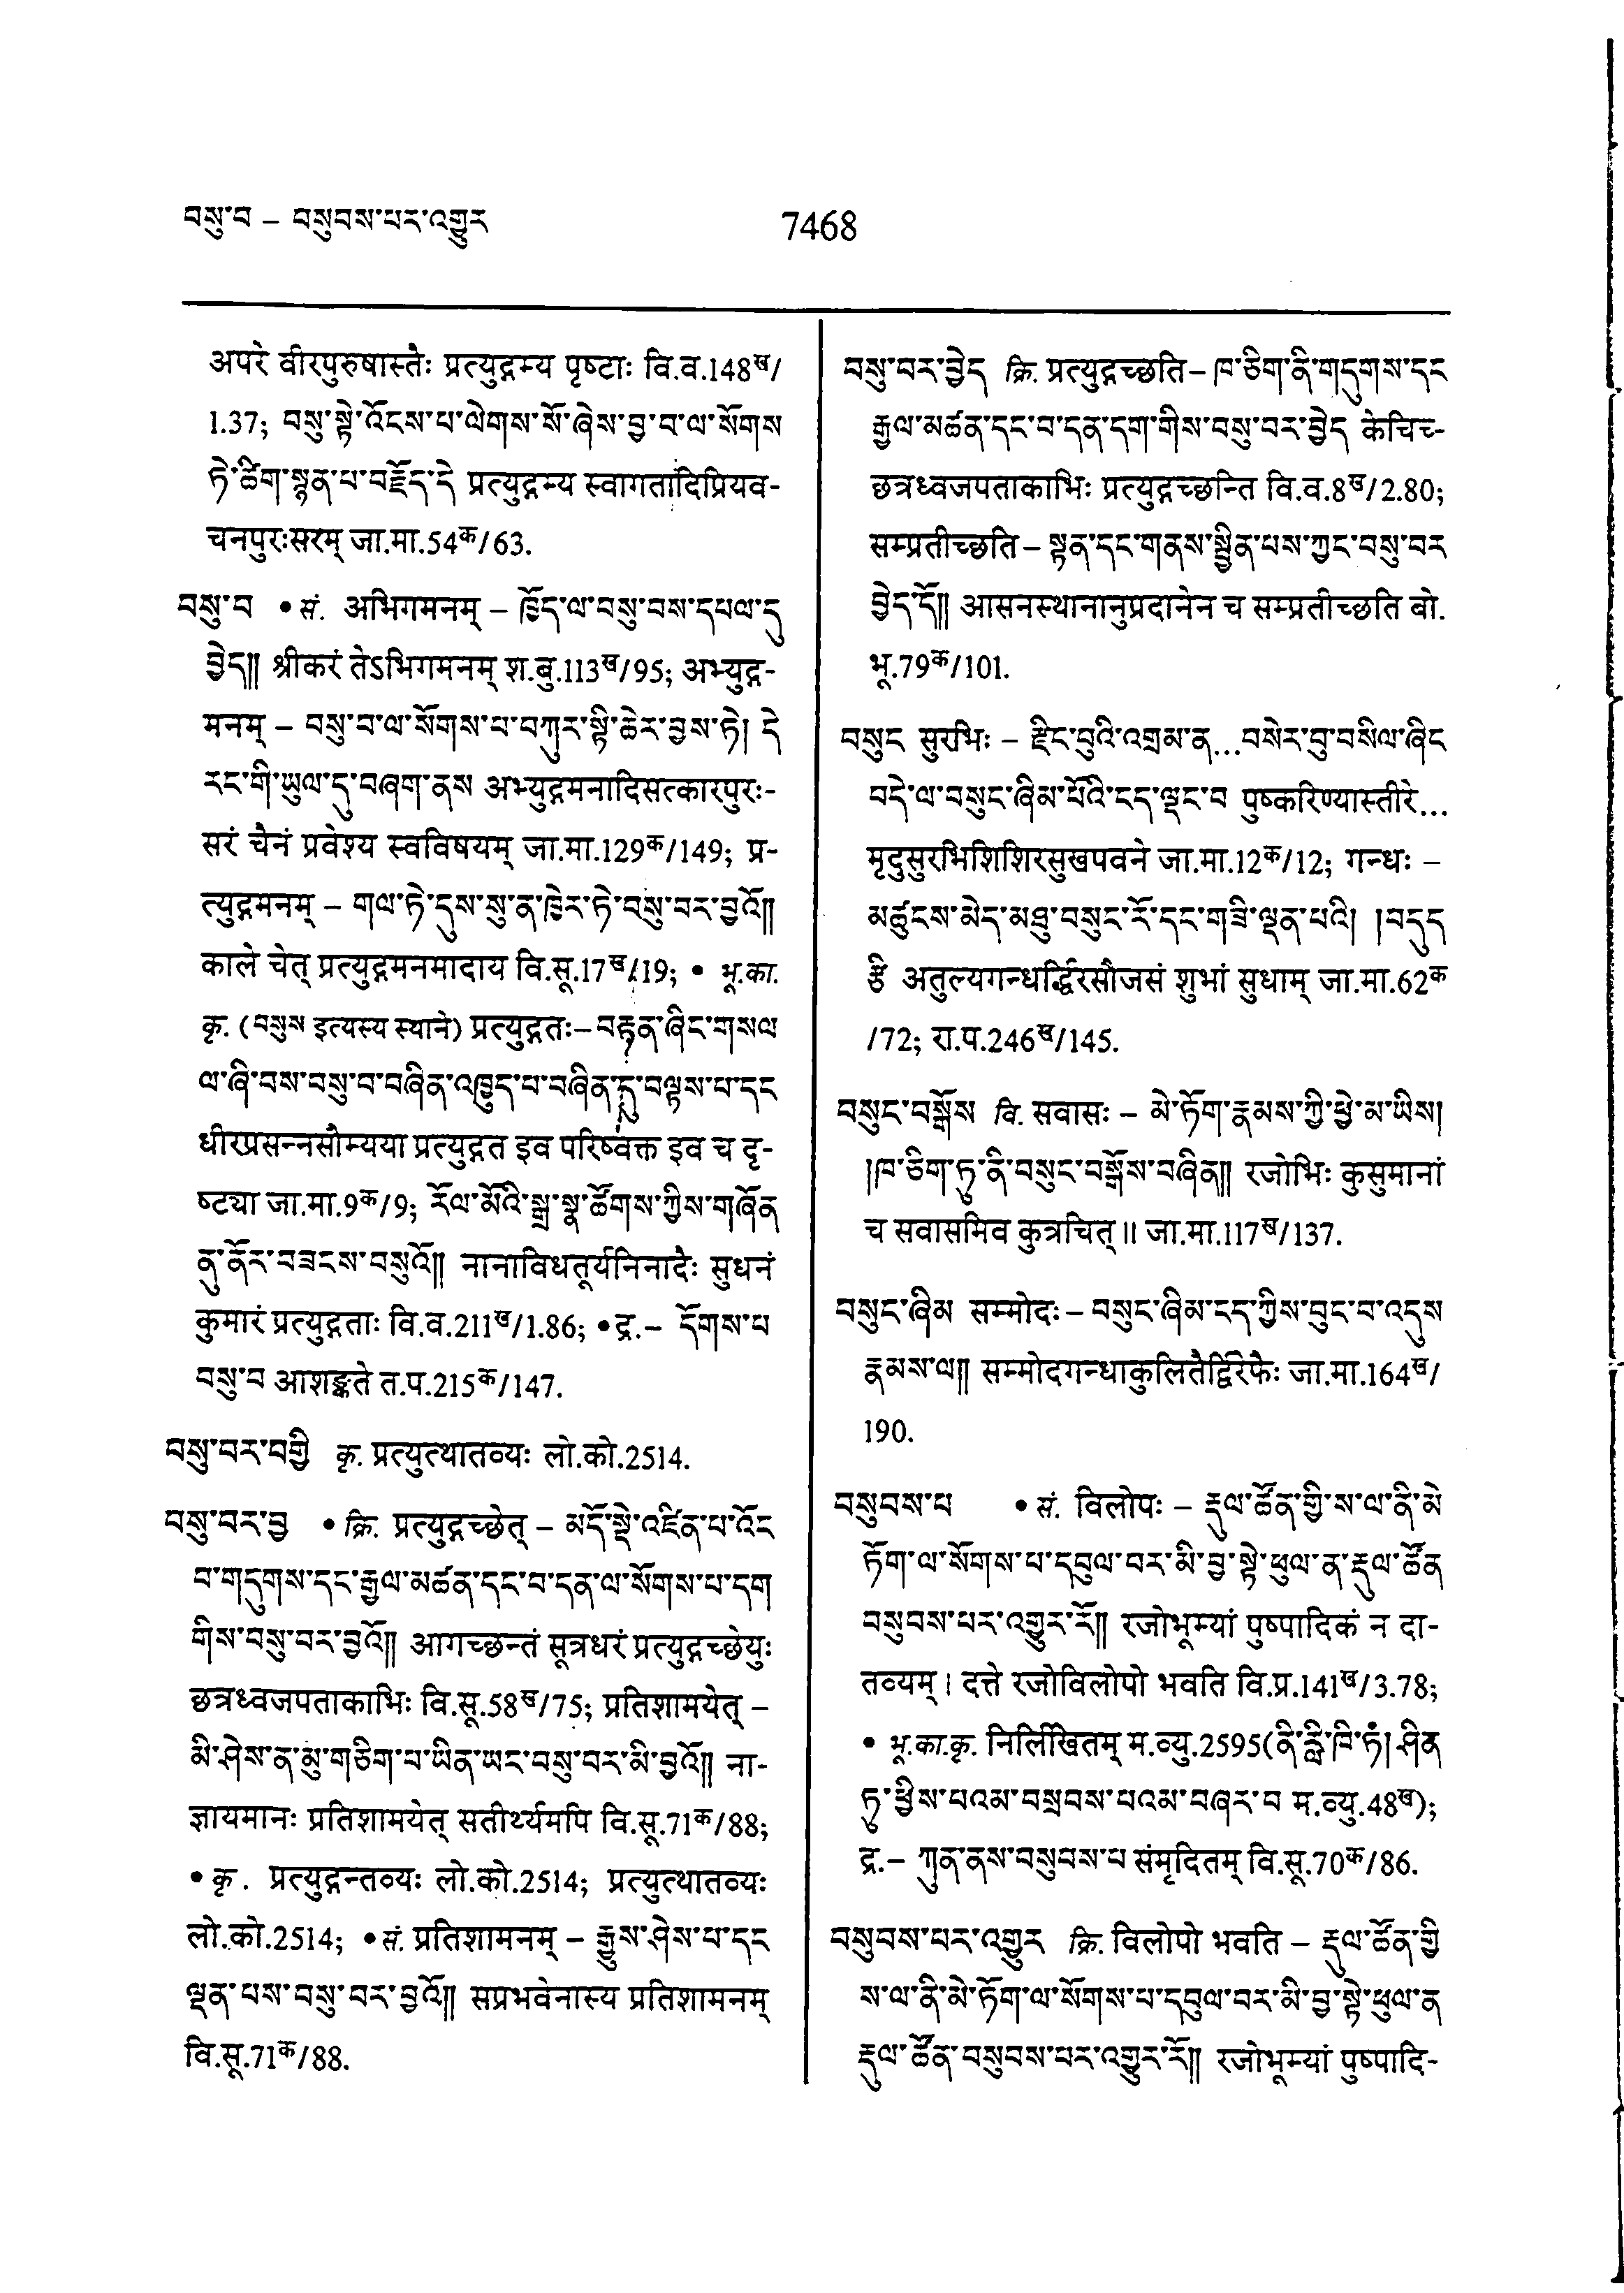 བསུ་བ – བསུབས་པར་འགྱུར
7468
अपरे वीरपुरुषास्तैः प्रत्युद्गम्य पृष्टाः वि.व.148ख/
1.37; བསུ་སྟེ་འོངས་པ་ལེགས་སོ་ཞེས་བྱ་བ་ལ་སོགས
ཏེ་ཚིག་སྙན་པ་བརྗོད་དེ प्रत्युद्गम्य स्वागतादिप्रियव-
चनपुरःसरम् जा.मा.54क/63.
བསུ་བ • सं. अभिगमनम् – ཁྱོད་ལ་བསུ་བས་དཔལ་དུ
བྱེད།། श्रीकरं तेऽभिगमनम् श.बु.113ख/95; अभ्युद्ग-
मनम् – བསུ་བ་ལ་སོགས་པ་བཀུར་སྟི་ཆེར་བྱས་ཏེ། དེ
རང་གི་ཡུལ་དུ་བཞག་ནས अभ्युद्गमनादिसत्कारपुरः-
सरं चैनं प्रवेश्य स्वविषयम् जा.मा.129क/149; प्र-
त्युद्गमनम् – གལ་ཏེ་དུས་སུ་ན་ཁྱེར་ཏེ་བསུ་བར་བྱའོ།།
काले चेत् प्रत्युद्गमनमादाय वि.सू.17ख/19; • भू.का.
कृ. (བསུས इत्यस्य स्थाने) प्रत्युद्गतः– བརྟན་ཞིང་གསལ
ལ་ཞི་བས་བསུ་བ་བཞིན་འཁྱུད་པ་བཞིན་དུ་བལྟས་པ་དང
धीरप्रसन्नसौम्यया प्रत्युद्गत इव परिष्वक्त इव च दृ-
ष्ट्या जा.मा.9क/9; རོལ་མོའི་སྒྲ་སྣ་ཚོགས་ཀྱིས་གཞོན
ནུ་ནོར་བཟངས་བསུའོ།། नानाविधतूर्यनिनादैः सुधनं
कुमारं प्रत्युद्गताः वि.व.211ख/1.86; • द्र.– དོགས་པ
བསུ་བ आशङ्कते त.प.215क/147.
བསུ་བར་བགྱི कृ. प्रत्युत्थातव्यः लो.को.2514.
བསུ་བར་བྱ • क्रि. प्रत्युद्गच्छेत् – མདོ་སྡེ་འཛིན་པ་འོང
བ་གདུགས་དང་རྒྱལ་མཚན་དང་བ་དན་ལ་སོགས་པ་དག
གིས་བསུ་བར་བྱའོ།། आगच्छन्तं सूत्रधरं प्रत्युद्गच्छेयुः
छत्रध्वजपताकाभिः वि.सू.58ख/75; प्रतिशामयेत् –
མི་ཤེས་ན་མུ་གཅིག་པ་ཡིན་ཡང་བསུ་བར་མི་བྱའོ།། ना-
ज्ञायमानः प्रतिशामयेत् सतीर्थ्यमपि वि.सू.71क/88;
• कृ. प्रत्युद्गन्तव्यः लो.को.2514; प्रत्युत्थातव्यः
लो.को.2514; • सं. प्रतिशामनम् – རྒྱུས་ཤེས་པ་དང
ལྡན་པས་བསུ་བར་བྱའོ།། सप्रभवेनास्य प्रतिशामनम्
वि.सू.71क/88.
བསུ་བར་བྱེད क्रि. प्रत्युद्गच्छति– ཁ་ཅིག་ནི་གདུགས་དང
རྒྱལ་མཚན་དང་བ་དན་དག་གིས་བསུ་བར་བྱེད केचिच्-
छत्रध्वजपताकाभिः प्रत्युद्गच्छन्ति वि.व.8ख/2.80;
सम्प्रतीच्छति – སྟན་དང་གནས་སྦྱིན་པས་ཀྱང་བསུ་བར
བྱེད་དོ།། आसनस्थानानुप्रदानेन च सम्प्रतीच्छति बो.
भू.79क/101.
བསུང सुरभिः – རྫིང་བུའི་འགྲམ་ན...བསེར་བུ་བསིལ་ཞིང
བདེ་ལ་བསུང་ཞིམ་པོའི་ངད་ལྡང་བ पुष्करिण्यास्तीरे...
मृदुसुरभिशिशिरसुखपवने जा.मा.12क/12; गन्धः –
མཚུངས་མེད་མཐུ་བསུང་རོ་དང་གཟི་ལྡན་པའི། །བདུད
རྩི अतुल्यगन्धर्द्धिरसौजसं शुभां सुधाम् जा.मा.62क
/72; रा.प.246ख/145.
བསུང་བསྒོས वि. सवासः – མེ་ཏོག་རྣམས་ཀྱི་ཕྱེ་མ་ཡིས།
།ཁ་ཅིག་ཏུ་ནི་བསུང་བསྒོས་བཞིན།། रजोभिः कुसुमानां
च सवासमिव कुत्रचित्॥ जा.मा.117ख/137.
བསུང་ཞིམ सम्मोदः – བསུང་ཞིམ་ངད་ཀྱིས་བུང་བ་འདུས
རྣམས་ལ།། सम्मोदगन्धाकुलितैर्द्विरेफैः जा.मा.164ख/
190.
བསུབས་པ • सं. विलोपः – རྡུལ་ཚོན་གྱི་ས་ལ་ནི་མེ
ཏོག་ལ་སོགས་པ་དབུལ་བར་མི་བྱ་སྟེ་ཕུལ་ན་རྡུལ་ཚོན
བསུབས་པར་འགྱུར་རོ།། रजोभूम्यां पुष्पादिकं न दा-
तव्यम्। दत्ते रजोविलोपो भवति वि.प्र.141ख/3.78;
• भू.का.कृ. निर्लिखितम् म.व्यु.2595(ནི་རླི་ཁི་ཏཾ། ཤིན
ཏུ་ཕྱིས་པའམ་བསྲབས་པའམ་བཞར་བ म.व्यु.48ख);
द्र.– ཀུན་ནས་བསུབས་པ संमृदितम् वि.सू.70क/86.
བསུབས་པར་འགྱུར क्रि. विलोपो भवति – རྡུལ་ཚོན་གྱི
ས་ལ་ནི་མེ་ཏོག་ལ་སོགས་པ་དབུལ་བར་མི་བྱ་སྟེ་ཕུལ་ན
རྡུལ་ཚོན་བསུབས་པར་འགྱུར་རོ།། रजोभूम्यां पुष्पादि-